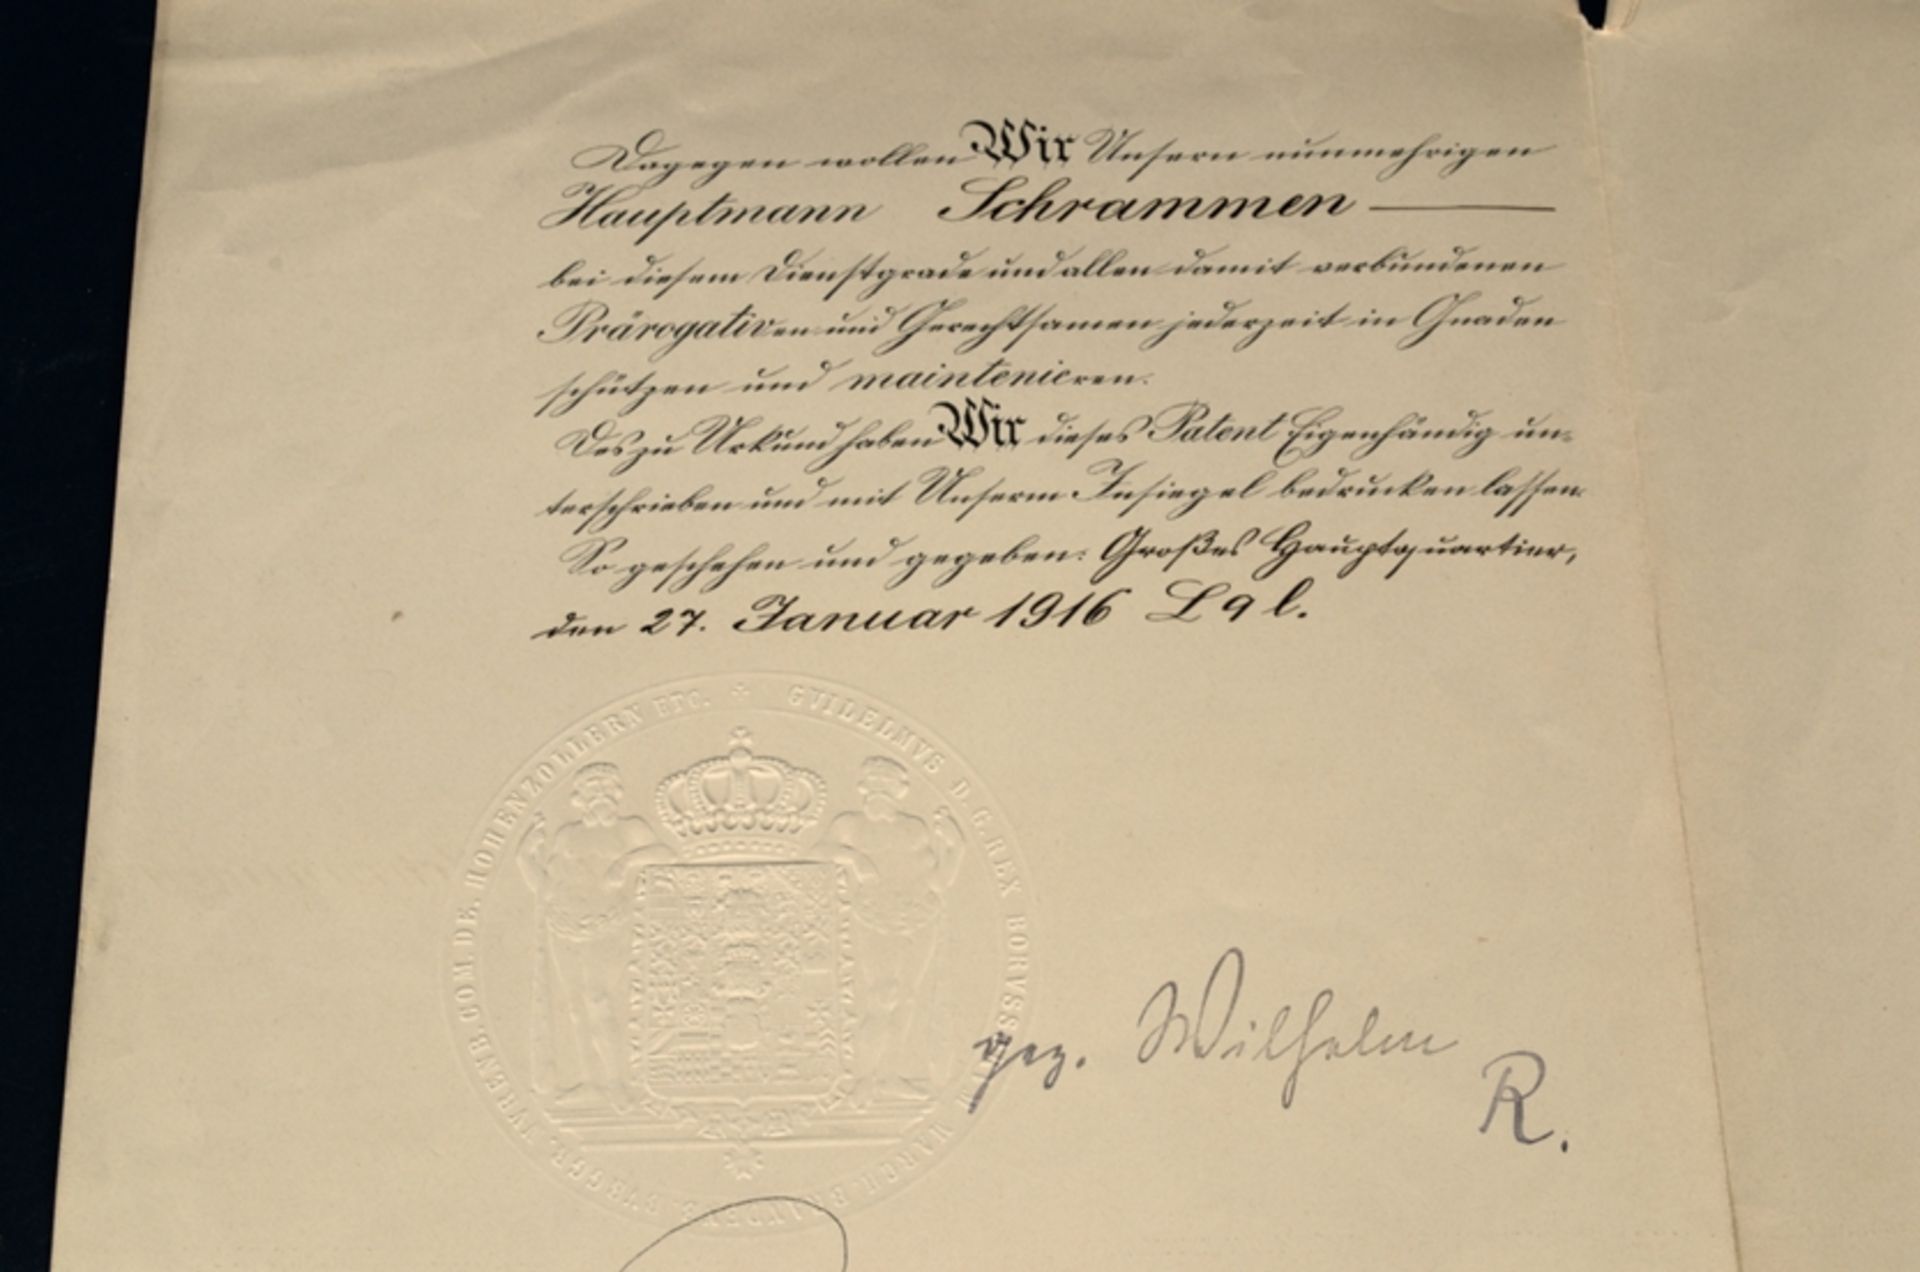 Dagegen wollen Wir Unsern nunmehrigen
Hauptmann Schrammen
bei diesem Dienstgrade und allen damit verbundenen
Prärogativen und Gerechtsamen jederzeit in Gnaden
schützen und maintenieren.
Des zu Urkund haben Wir dieses Patent Eigenhändig un-
terschrieben und mit Unserm Insiegel bedrucken lassen.
So geschehen und gegeben: Großes Hauptquartier,
den 27. Januar 1916 L q l.
GVILELMVS D. G. REX BORVSS MARCH. BURGGR. COM. DE. HOHENZOLLERN ETC.
gez. Wilhelm
R.